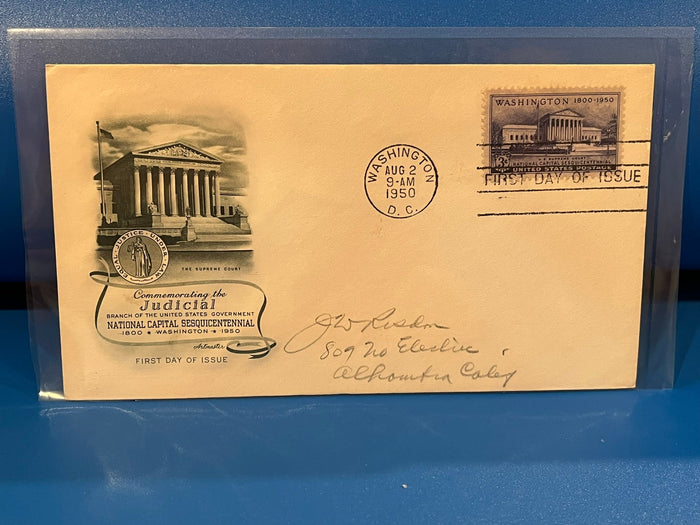 WASHINGTON 1800-1950
3¢
U.S. SUPREME COURT
NATIONAL CAPITAL SESQUICENTENNIAL
UNITED STATES POSTAGE
FIRST DAY OF ISSUE
WASHINGTON
AUG 2
9-AM
1950
D. C.
THE SUPREME COURT
EQUAL JUSTICE UNDER LAW
Commemorating the
Judicial
BRANCH OF THE UNITED STATES GOVERNMENT
NATIONAL CAPITAL SESQUICENTENNIAL
1800 ★ WASHINGTON ★ 1950
Artmaster
FIRST DAY OF ISSUE
J W
809 No Electric
Alhambra